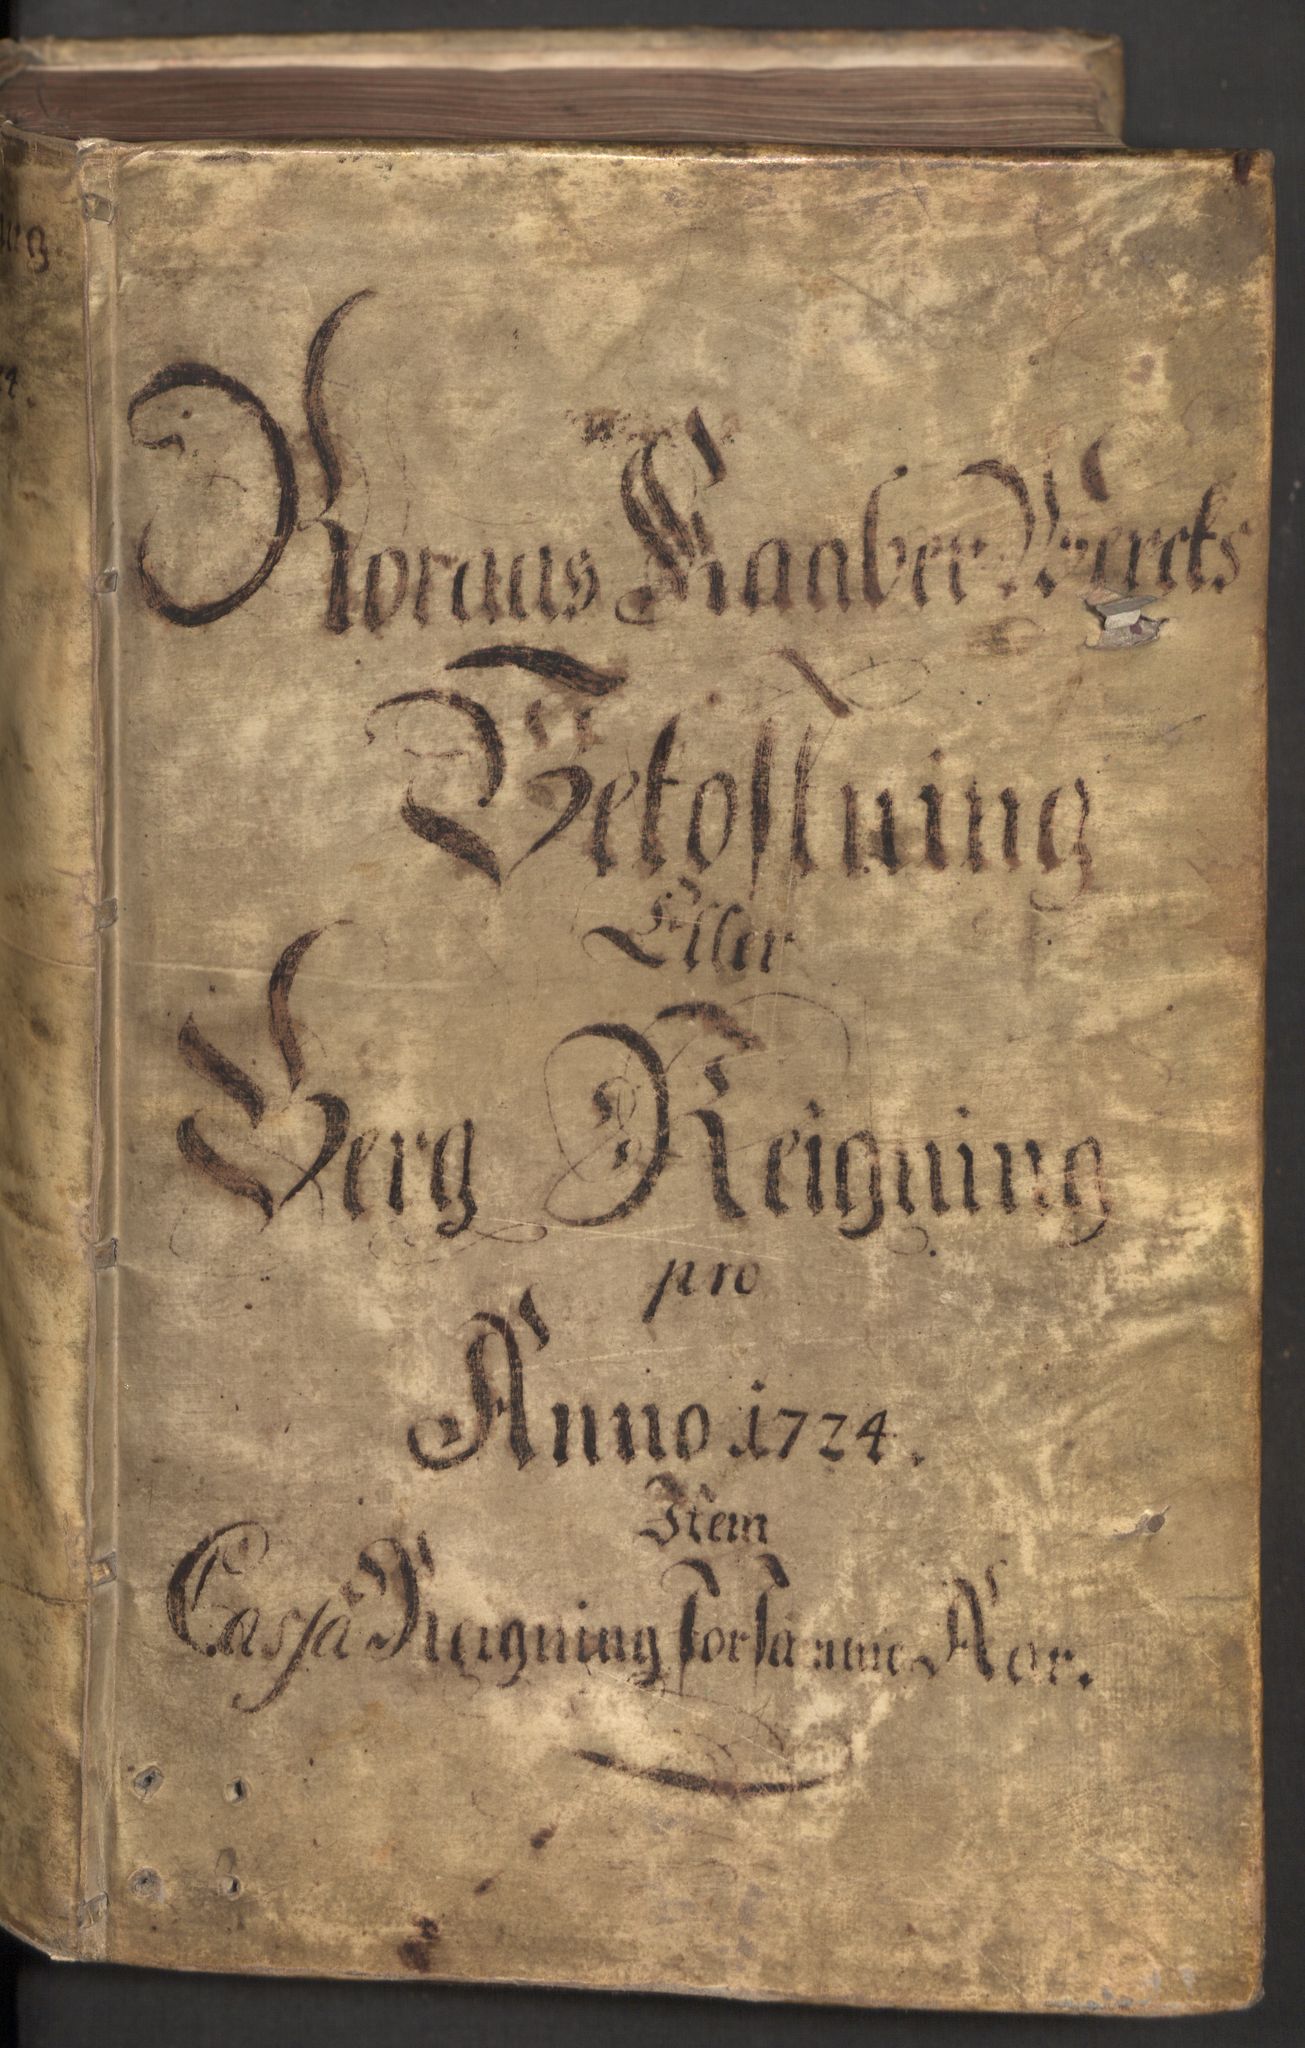 Roraas Kaaber Wercks
Bekostning
Eller
Berg Reigning
pro
Anno 1724.
Item
Cassa Reigning for samme Aar.